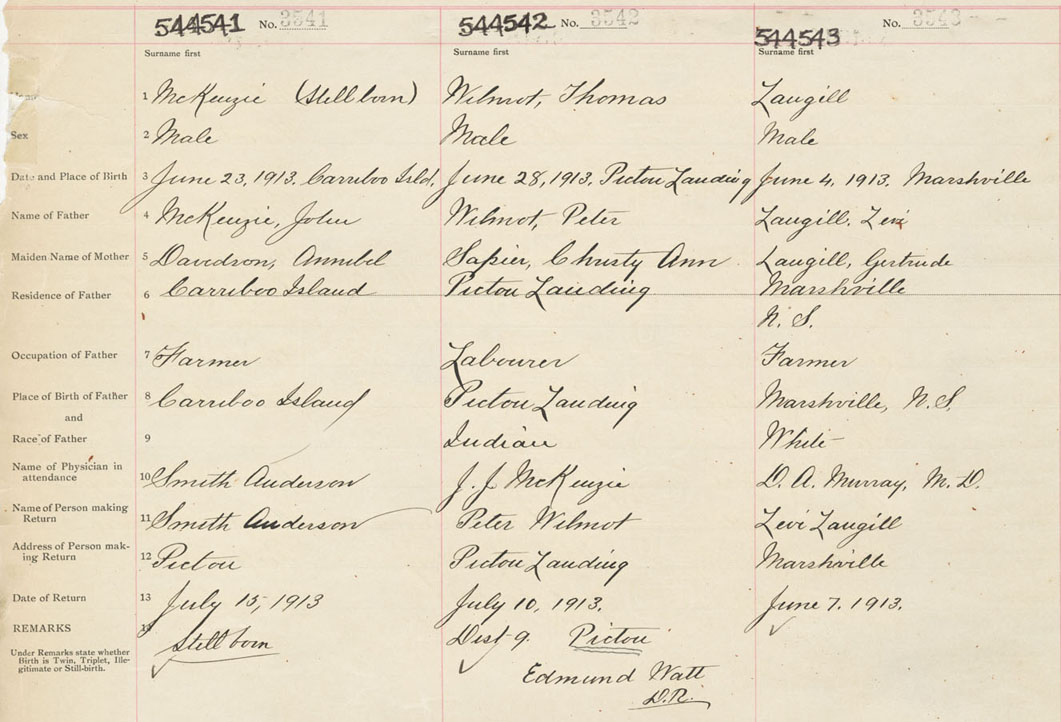 544541 No. 3541 544542 No. 3542 544543 No. 3543
Surname first Surname first Surname first
1 McKenzie (Still born) Wilmot, Thomas Langill
Sex 2 Male Male Male
Date and Place of Birth 3 June 23, 1913. Carriboo Isld. June 28, 1913. Pictou Landing June 4, 1913. Marshville
Name of Father 4 McKenzie, John Wilmot, Peter Langill. Levi
Maiden Name of Mother 5 Davidson, Annibel Sapier, Christy Ann Langill, Gertrude
Residence of Father 6 Carriboo Island Pictou Landing Marshville
N. S.
Occupation of Father 7 Farmer Labourer Farmer
Place of Birth of Father 8 Carriboo Island Pictou Landing Marshville, N. S.
and
Race of Father 9 Indian White
Name of Physician in
attendance 10 Smith Anderson J. J. McKenzie D. A. Murray, M. D.
Name of Person making
Return 11 Smith Anderson Peter Wilmot Levi Langill
Address of Person mak-
ing Return 12 Pictou Pictou Landing Marshville
Date of Return 13 July 15, 1913 July 10, 1913. June 7. 1913.
REMARKS 14 Still born Dist 9. Pictou
Under Remarks state whether
Birth is Twin, Triplet, Ille-
gitimate or Still-birth.
Edmund Watt
D.R.